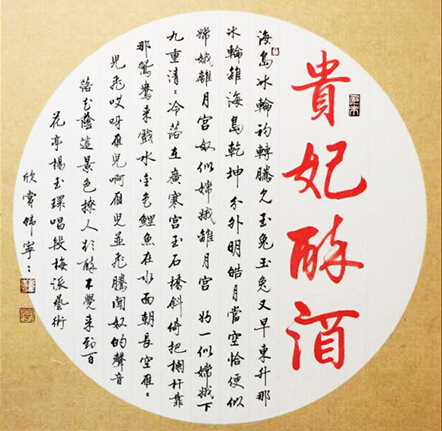 貴妃醉酒
海島冰輪初轉騰見玉兔玉兔又早東升那
冰輪離海島乾坤分外明皓月當空恰便似
嫦娥離月宮奴似嫦娥離月宮好一似嫦娥下
九重清〻冷落在廣寒宮玉石橋斜倚把欄杆靠
那鴛鴦來戲水金色鯉魚在水面朝長空雁〻
兒飛哎呀雁兒啊雁兒並飛騰聞奴的聲音
落花蔭這景色撩人欲醉不覺來到百
花亭楊玉環唱段梅派藝術
欣賞韓寧〻